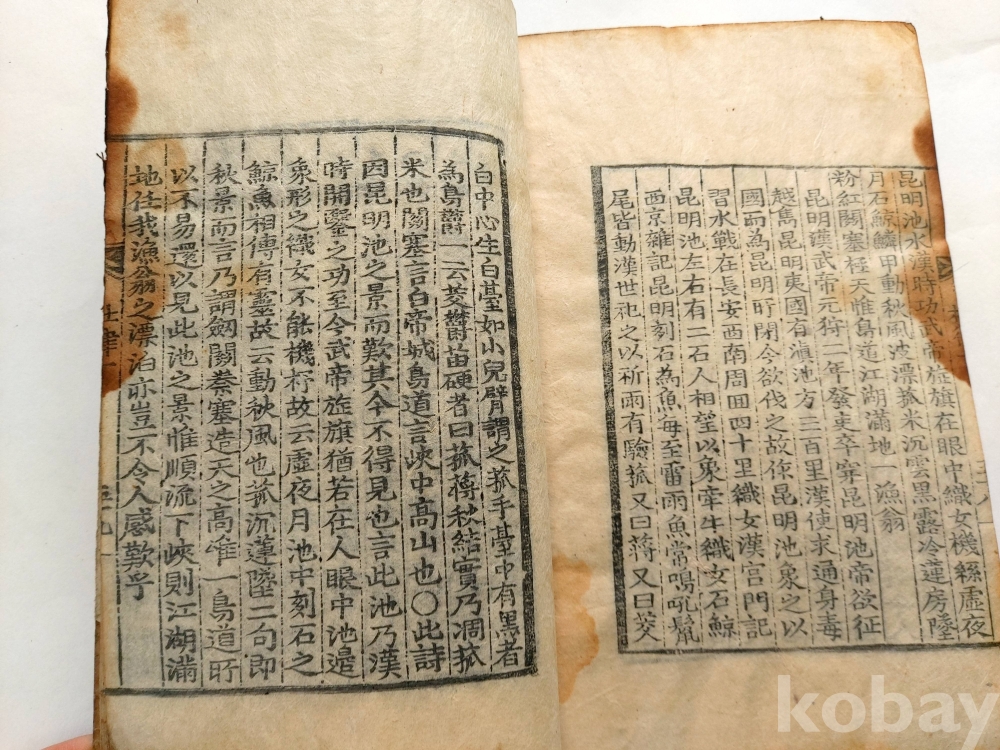 昆明池水漢時功武帝旌旗在眼中織女機絲虛夜
月石鯨鱗甲動秋風波漂菰米沉雲黑露冷蓮房墜
粉紅關塞極天惟鳥道江湖滿地一漁翁
昆明漢武帝元狩二年發吏卒穿昆明池帝欲征
越嶲昆明夷國有滇池方三百里漢使求通身毒
國而為昆明所閉今欲伐之故作昆明池象之以
習水戰在長安西南周回四十里織女漢宮門記
昆明池左右有二石人相望以象牽牛織女石鯨
西京雜記昆明刻石為魚每至雷雨魚常鳴吼鬣
尾皆動漢世祀之以祈雨有驗菰又曰蔣又曰茭
白中心生白臺如小兒臂謂之菰手臺中有黑者
為烏欝一云茭欝苗硬者曰菰蔣秋結實乃凋菰
米也關塞言白帝城鳥道言峽中高山也○此詩
因昆明池之景而歎其今不得見也言此池乃漢
時開鑿之功至今武帝旌旗猶若在人眼中池邊
象形之織女不能機杼故云虛夜月池中刻石之
鯨魚相傳有靈故云動秋風也菰沉蓮墜二句即
秋景而言乃謂劍關秦塞造天之高唯一鳥道所
以不易還以見此池之景惟順流下峽則江湖滿
地任我漁翁之漂泊亦豈不令人感歎乎
杜律
五九
kobay